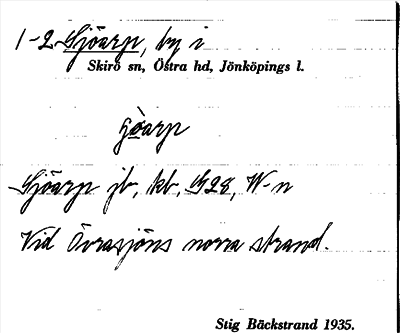 1-2 Gjöarp, by i
Skirö sn, Östra hd, Jönköpings l.
jòarp
Gjöarp jb, kb, G28, W-n
Vid Övrasjöns norra strand.
Stig Bäckstrand 1935.